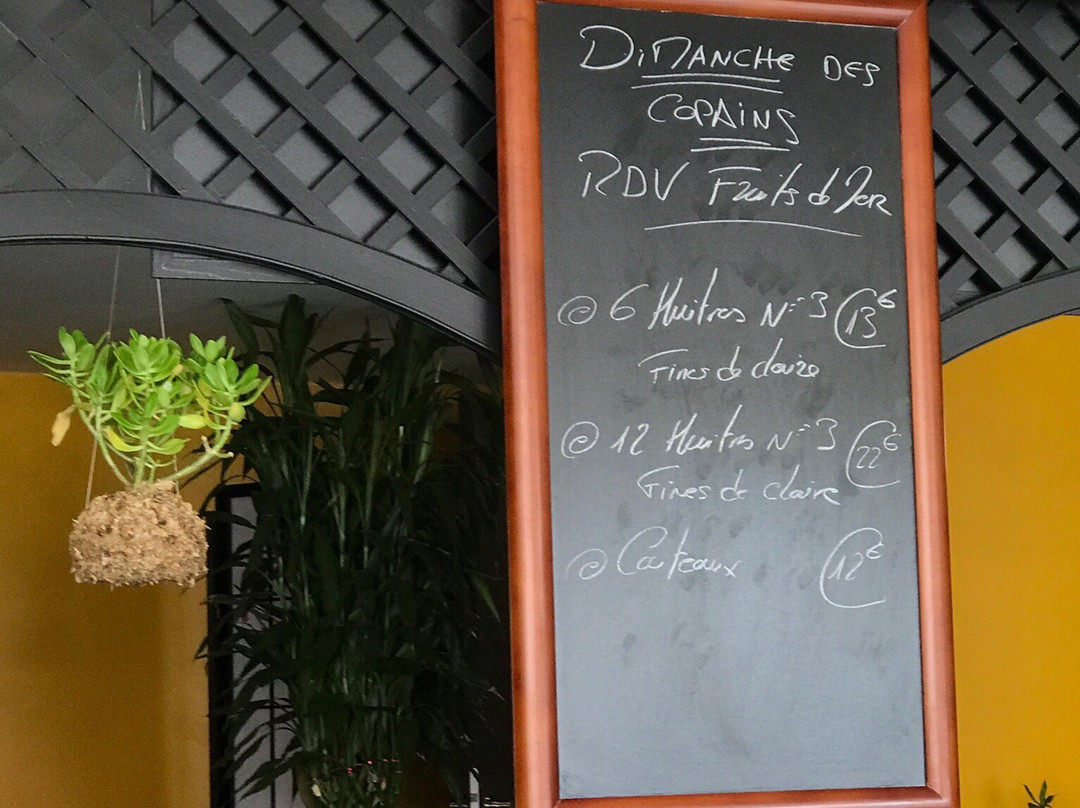 DiMANCHE DES
COPAiNS
RDV Fruits de Mer
@ 6 Huitres N° 3 13€
Fines de claire
@ 12 Huitres N° 3 22€
Fines de claire
@ Couteaux 12€